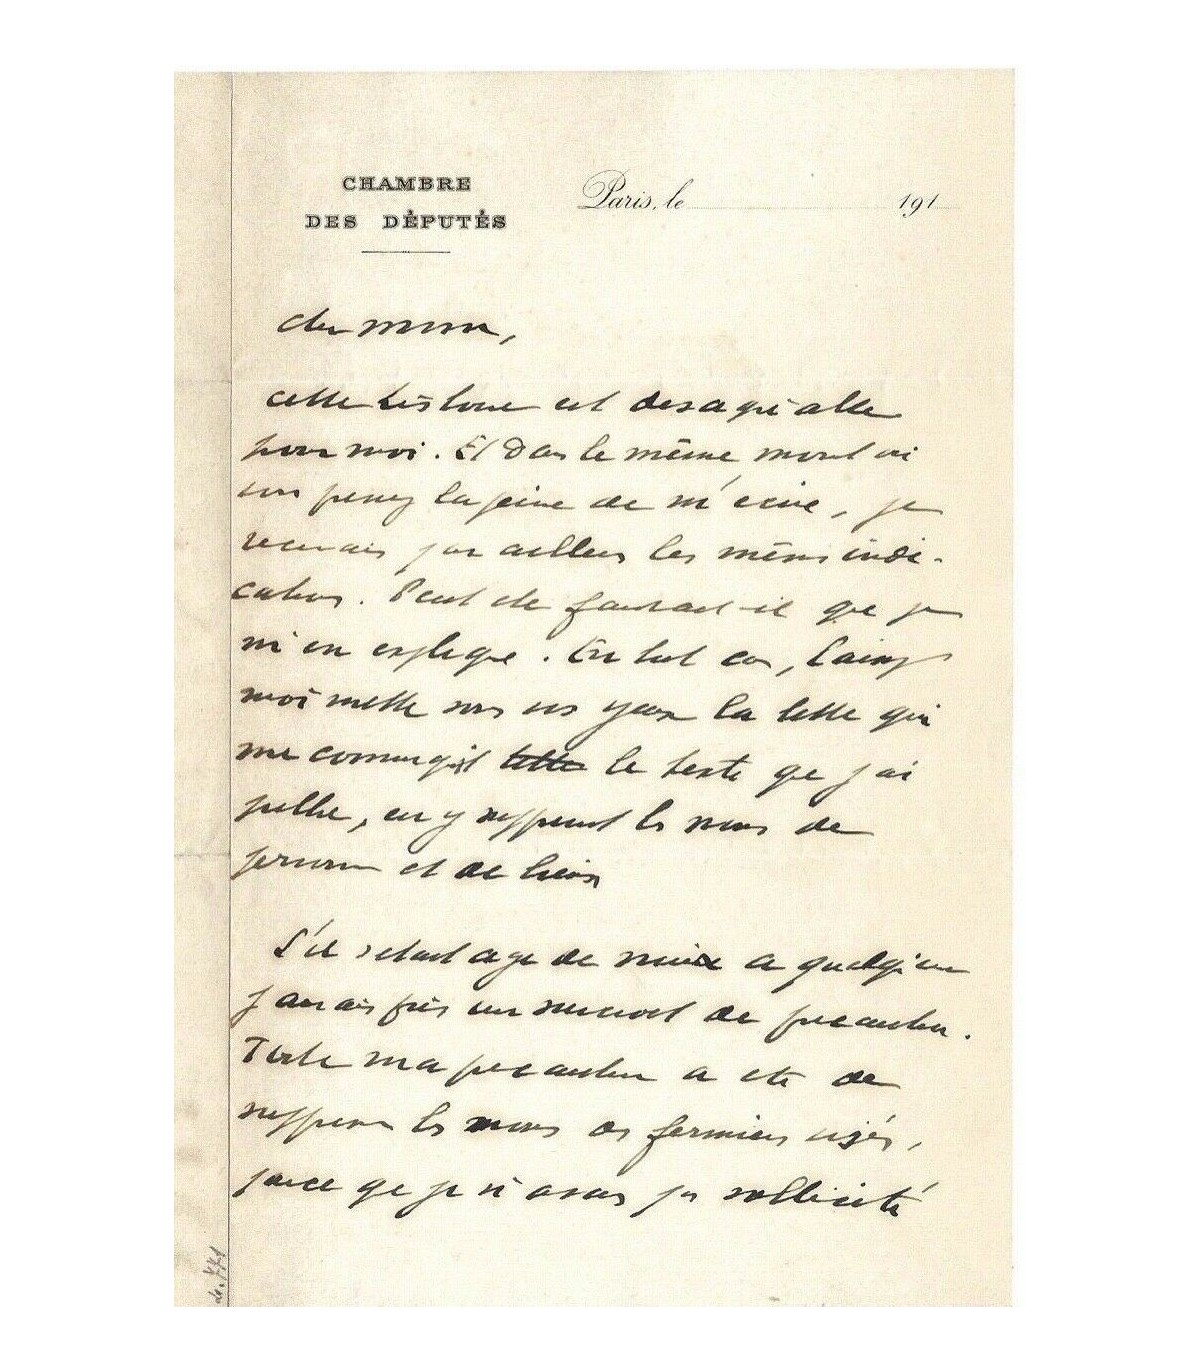 CHAMBRE
DES DÉPUTÉS
Paris, le 191
cette histoire est desagréable
pour moi. Et dans le même moment où
vous prenez la peine de m'écrire, je
recevais par ailleurs les mêmes indi-
cations. Peut être faudrait-il que je
m'en explique. En tout cas, laissez
moi mettre sous vos yeux la lettre qui
me communiquait le texte que j'ai
publié, en y supprimant les noms de
personnes et de lieux
S'il s'etait agi de nuire a quelqu'un
j'aurais pris un surcroit de precaution.
Toute ma precaution a ete de
supprimer les noms des fermiers visés,
parce que je n'avais pas sollicité